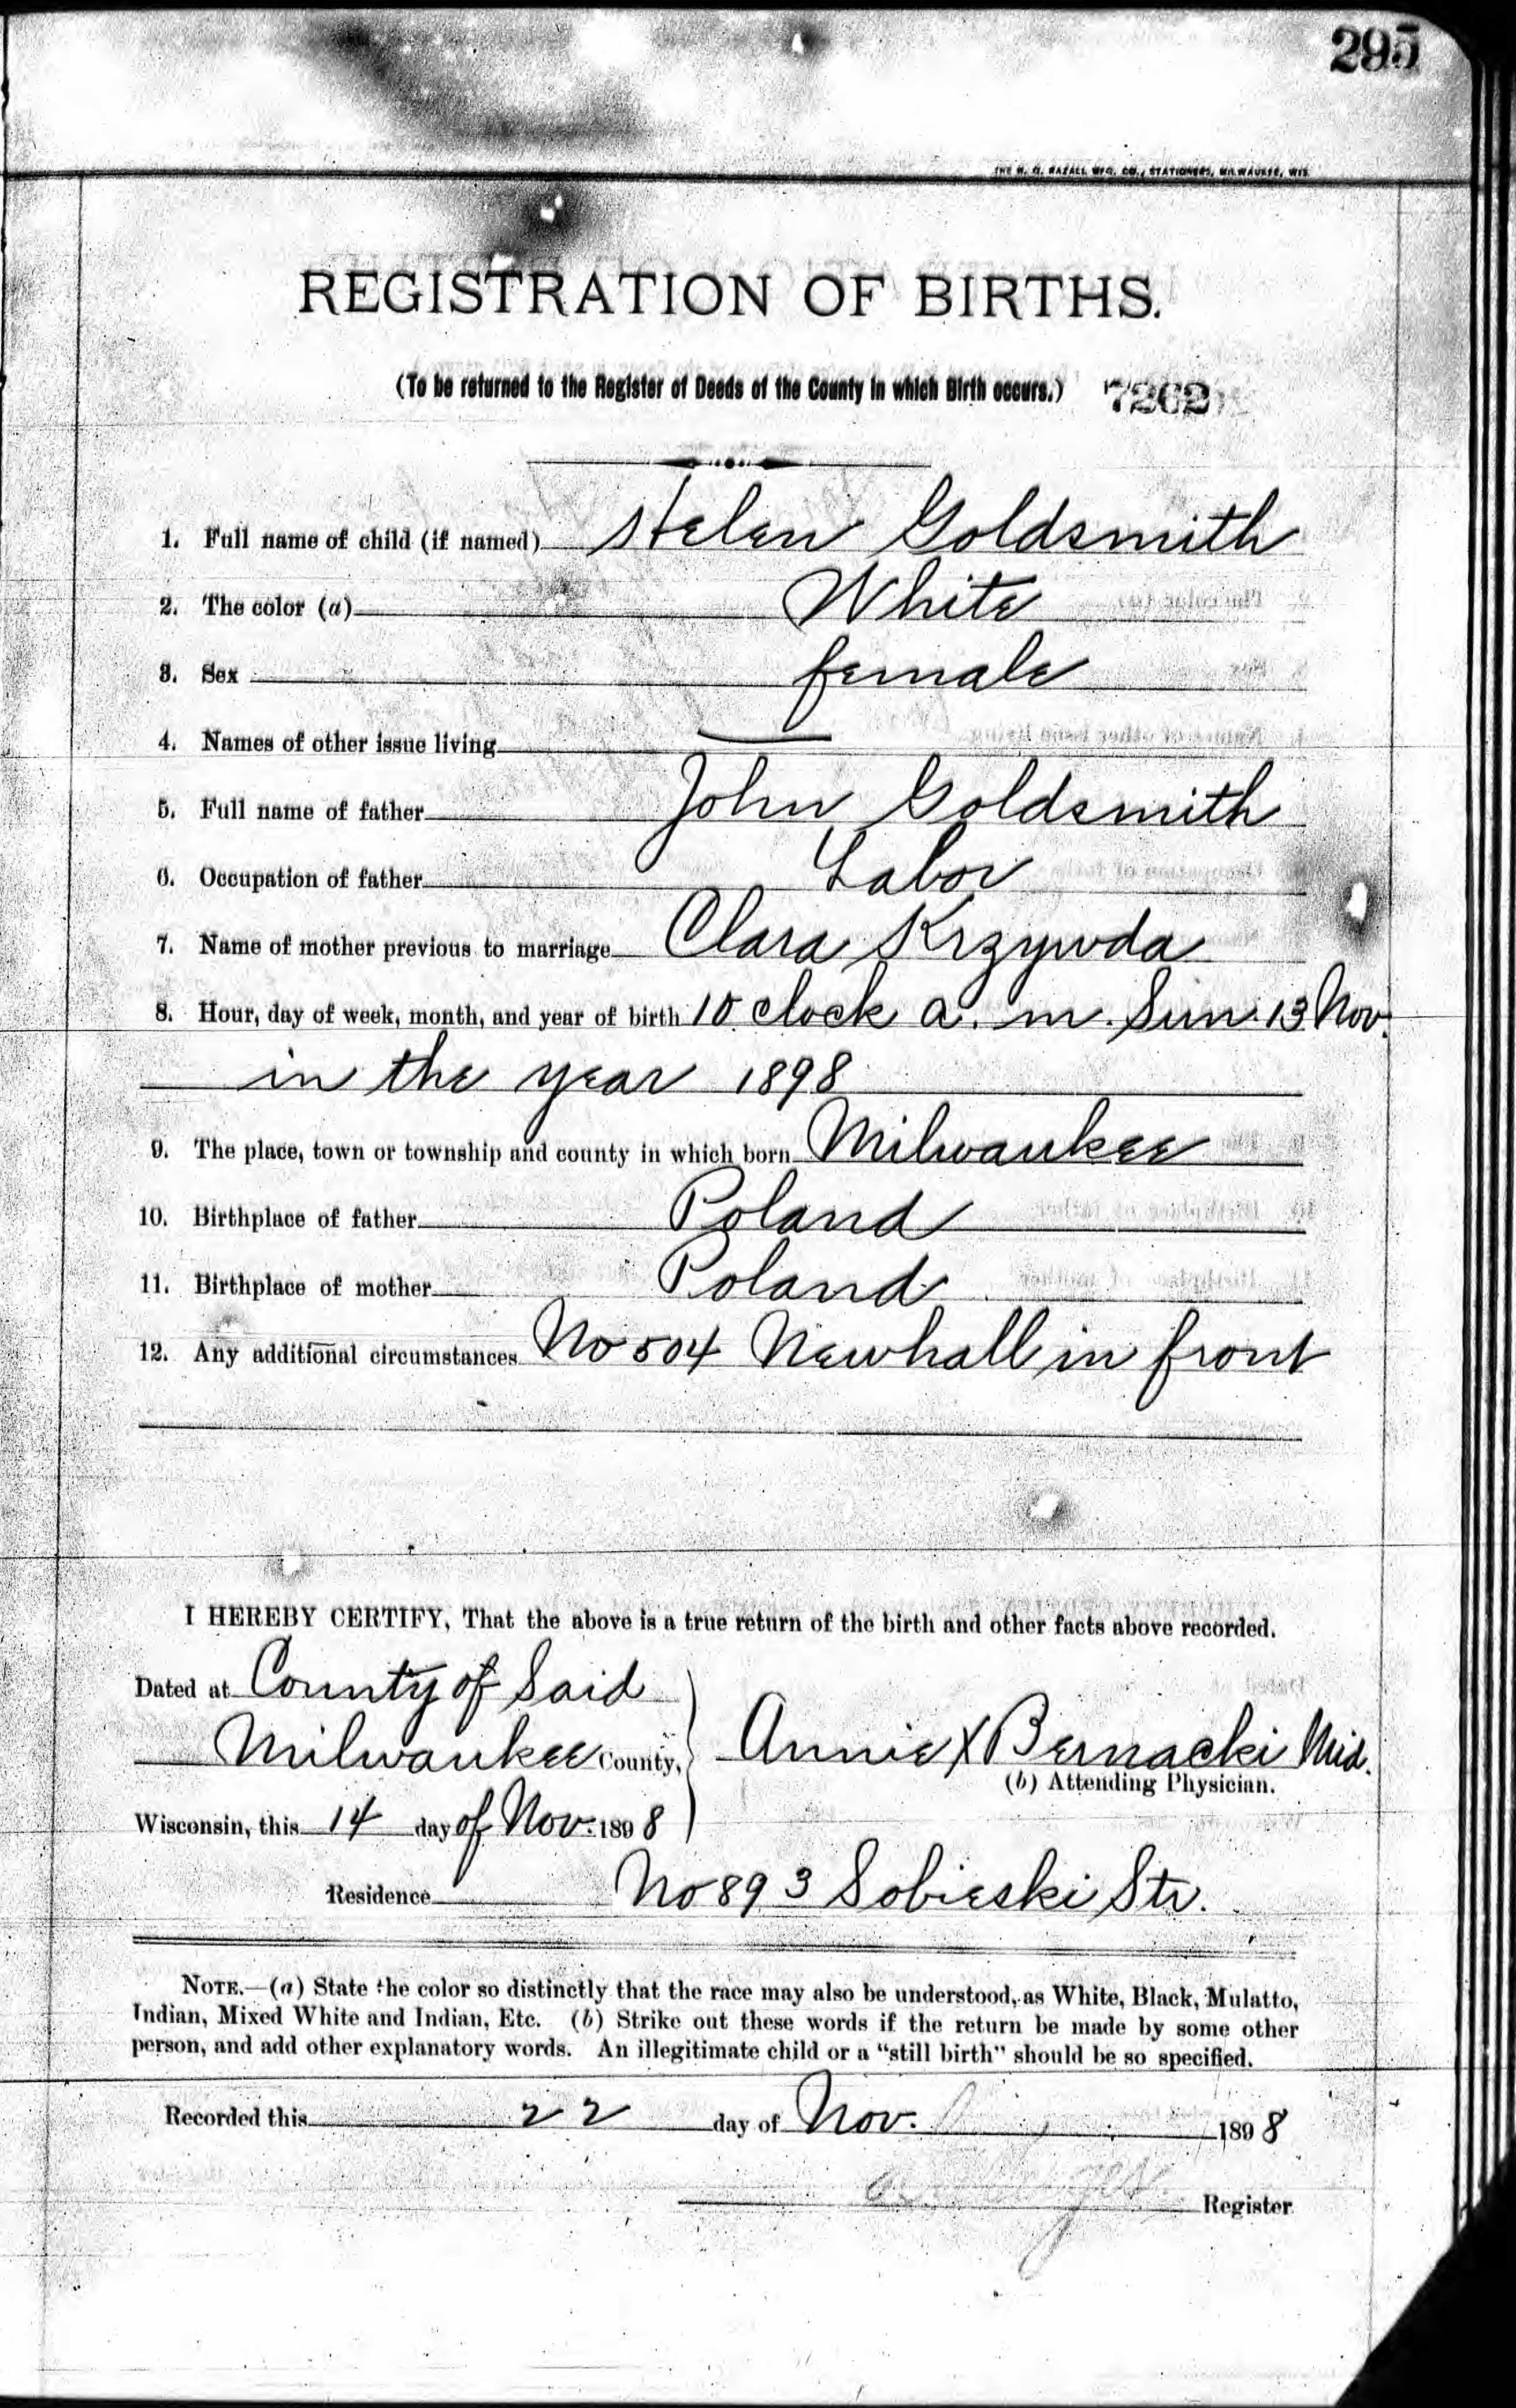 295
THE H. H. RAZALL MFG. CO., STATIONERS, MILWAUKEE, WIS
REGISTRATION OF BIRTHS.
(To be returned to the Register of Deeds of the County in which Birth occurs.) 7262
1. Full name of child (if named) Helen Goldsmith
2. The color (a) White
3. Sex female
4. Names of other issue living —
5. Full name of father John Goldsmith
6. Occupation of father Labor
7. Name of mother previous to marriage Clara Krzywda
8. Hour, day of week, month, and year of birth 10 clock a. m. Sun. 13 Nov.
in the year 1898
9. The place, town or township and county in which born Milwaukee
10. Birthplace of father Poland
11. Birthplace of mother Poland
12. Any additional circumstances No 504 Newhall in front
I HEREBY CERTIFY, That the above is a true return of the birth and other facts above recorded.
Dated at County of Said
Milwaukee County, Annie X Bernacki Mid.
(b) Attending Physician.
Wisconsin, this 14 day of Nov. 1898
Residence No 893 Sobieski Str.
NOTE.—(a) State the color so distinctly that the race may also be understood, as White, Black, Mulatto,
Indian, Mixed White and Indian, Etc. (b) Strike out these words if the return be made by some other
person, and add other explanatory words. An illegitimate child or a "still birth" should be so specified.
Recorded this 22 day of Nov. 1898
Register